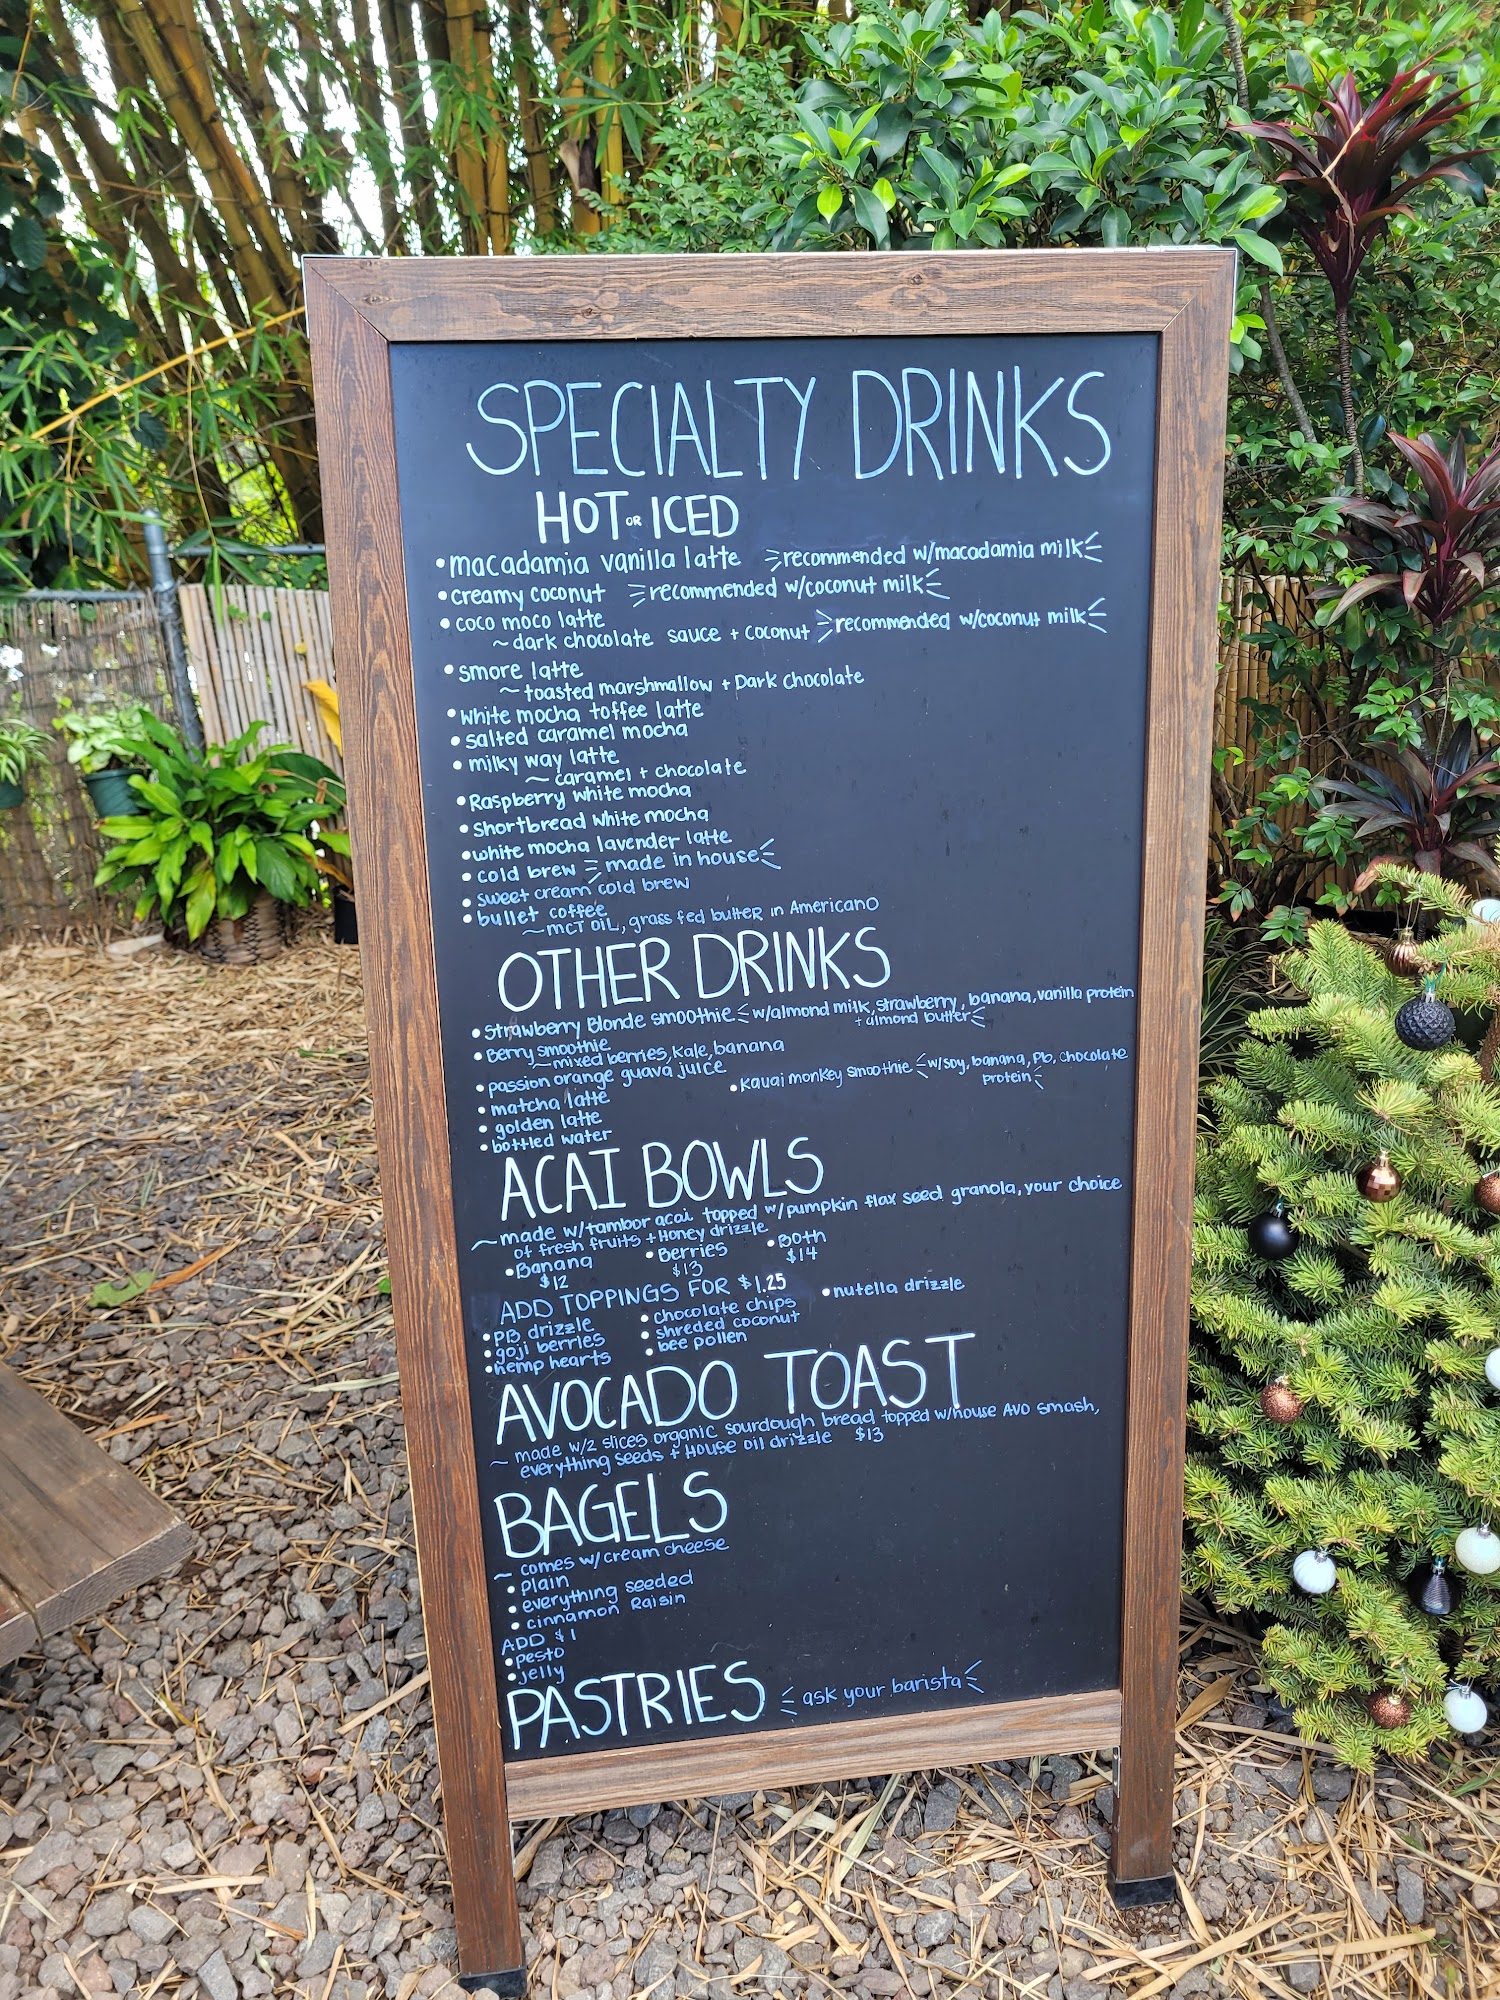 SPECIALTY DRINKS
HOT OR ICED
• macadamia vanilla latte recommended w/macadamia milk
• creamy coconut recommended w/coconut milk
• coco moco latte
~ dark chocolate sauce + coconut recommended w/coconut milk
• smore latte
~ toasted marshmallow + Dark chocolate
• white mocha toffee latte
• salted caramel mocha
• milky way latte
~ caramel + chocolate
• Raspberry white mocha
• Shortbread white mocha
• white mocha lavender latte
• cold brew made in house
• sweet cream cold brew
• bullet coffee
~ MCT OIL, grass fed butter in Americano
OTHER DRINKS
• Strawberry Blonde smoothie w/almond milk, strawberry, banana, vanilla protein
+ almond butter
• Berry smoothie
~ mixed berries, kale, banana
• passion orange guava juice
• Kauai monkey smoothie w/soy, banana, Pb, chocolate
protein
• matcha latte
• golden latte
• bottled water
ACAI BOWLS
~ made w/tambor acai topped w/pumpkin flax seed granola, your choice
of fresh fruits + Honey drizzle
• Banana • Berries • Both
$12 $13 $14
ADD TOPPINGS FOR $1.25
• PB drizzle • chocolate chips • nutella drizzle
• goji berries • shreded coconut
• hemp hearts • bee pollen
AVOCADO TOAST
~ made w/2 slices organic sourdough bread topped w/house AVO smash,
everything seeds + House oil drizzle $13
BAGELS
~ comes w/cream cheese
• plain
• everything seeded
• cinnamon Raisin
ADD $1
• pesto
• jelly
PASTRIES ask your barista